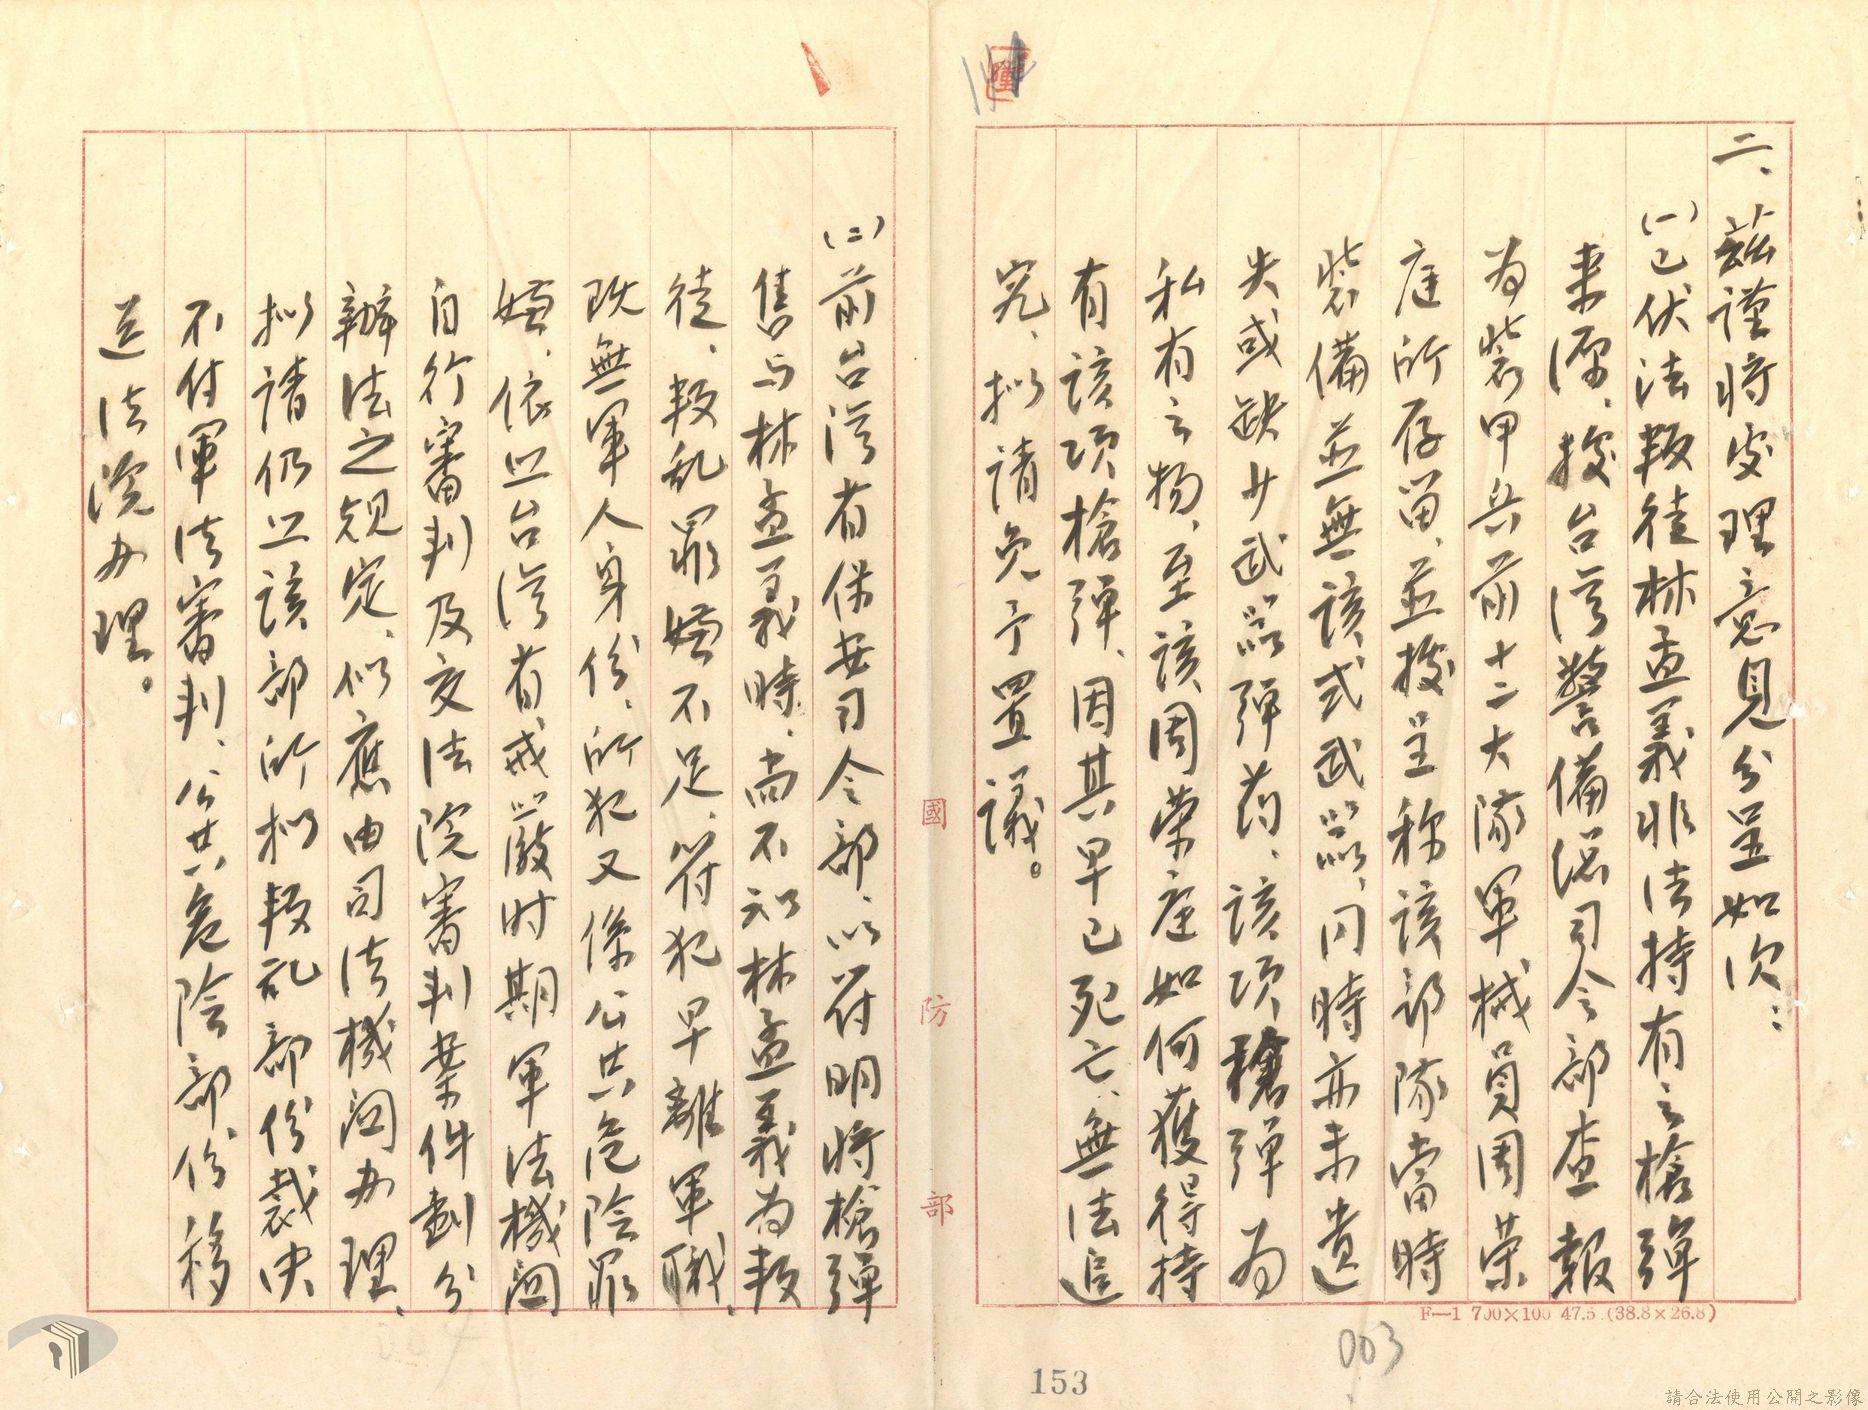 二、茲謹將安理意見分呈如次：
(一)已伏法叛徒林孟義非法持有之槍彈
來源、據台灣警備總司令部查報
为裝甲兵前十二大隊軍械員周榮
庭所存留、並據呈称該部隊當時
裝備並無該式武器、同時亦未遺
失或缺少武器彈药、該項槍彈为
私有之物、至該周榮庭如何獲得持
有該項槍彈、因其早已死亡、無法追
究、拟請免予置議。
(二)前台湾省保安司令部、以符明將槍彈
售与林孟義時、尚不知林孟義为叛
徒、叛乱罪嫌不足、符犯早離軍職、
既無軍人身份、所犯又係公共危險罪
嫌、依照台湾省戒严时期軍法機関
自行審判及交法院審判案件劃分
辦法之規定、似應由司法機関办理、
拟請仍照該部所拟叛乱部份裁决
不付軍法審判、公共危險部份移
送法院办理。
國防部
F—1 700×100 47.5 (38.8×26.8)
003
153
請合法使用公開之影像